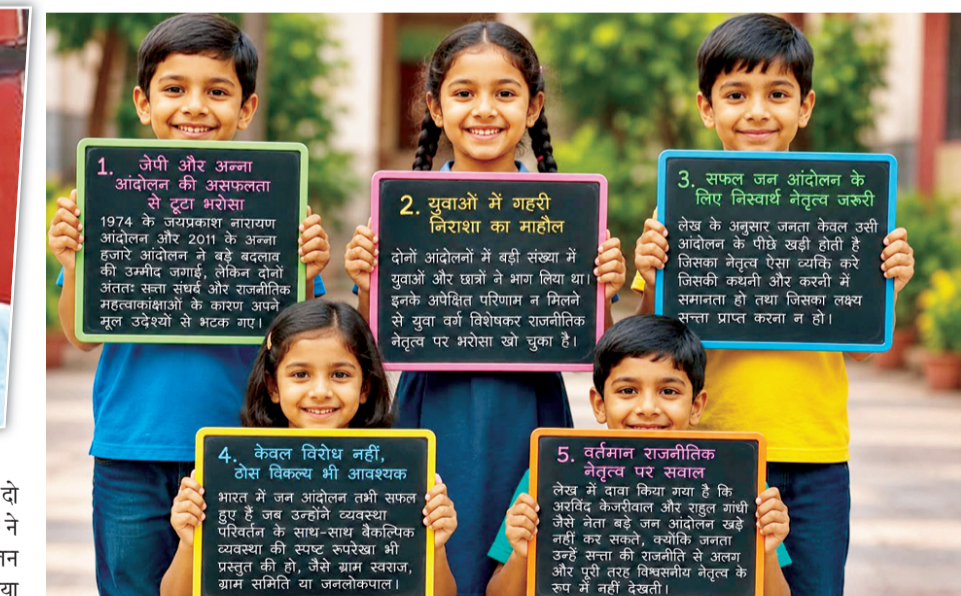 1. जेपी और अन्ना
आंदोलन की असफलता
से टूटा भरोसा
1974 के जयप्रकाश नारायण
आंदोलन और 2011 के अन्ना
हजारे आंदोलन ने बड़े बदलाव
की उम्मीद जगाई, लेकिन दोनों
अंततः सत्ता संघर्ष और राजनीतिक
महत्वाकांक्षाओं के कारण अपने
मूल उद्देश्यों से भटक गए।
2. युवाओं में गहरी
निराशा का माहौल
दोनों आंदोलनों में बड़ी संख्या में
युवाओं और छात्रों ने भाग लिया था।
इनके अपेक्षित परिणाम न मिलने
से युवा वर्ग विशेषकर राजनीतिक
नेतृत्व पर भरोसा खो चुका है।
3. सफल जन आंदोलन के
लिए निस्वार्थ नेतृत्व जरूरी
लेख के अनुसार जनता केवल उसी
आंदोलन के पीछे खड़ी होती है
जिसका नेतृत्व ऐसा व्यकि करे
जिसकी कथनी और करनी में
समानता हो तथा जिसका लक्ष्य
सत्ता प्राप्त करना न हो।
4. केवल विरोध नहीं,
ठोस विकल्प भी आवश्यक
भारत में जन आंदोलन तभी सफल
हुए हैं जब उन्होंने व्यवस्था
परिवर्तन के साथ-साथ वैकल्पिक
व्यवस्था की स्पष्ट रूपरेखा भी
प्रस्तुत की हो, जैसे ग्राम स्वराज,
ग्राम समिति या जनलोकपाल।
5. वर्तमान राजनीतिक
नेतृत्व पर सवाल
लेख में दावा किया गया है कि
अरविंद केजरीवाल और राहुल गांधी
जैसे नेता बड़े जन आंदोलन खड़े
नहीं कर सकते, क्योंकि जनता
उन्हें सत्ता की राजनीति से अलग
और पूरी तरह विश्वसनीय नेतृत्व के
रूप में नहीं देखती।
दो
ने
या